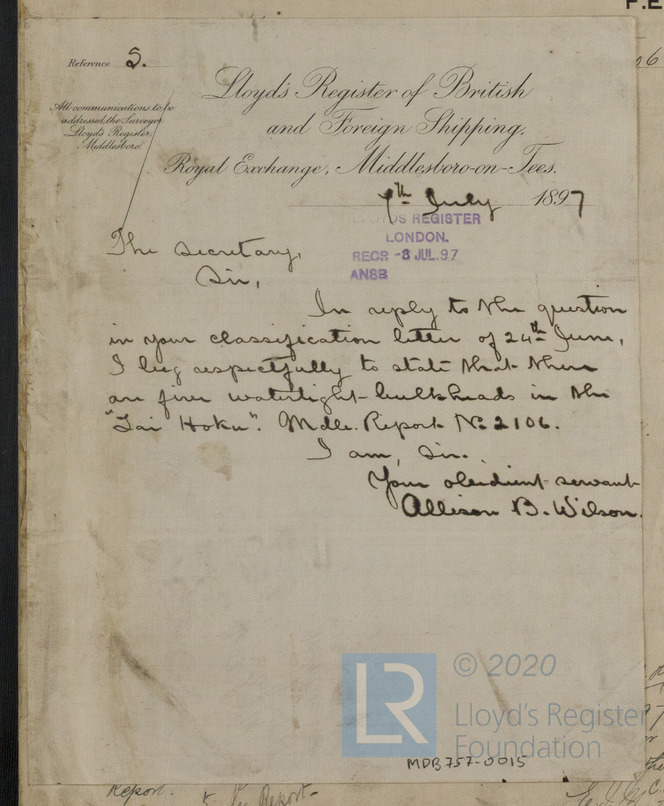 F.E
Reference S.
All communications to be
addressed the Surveyor
Lloyd's Register,
Middlesboro'.
Lloyd's Register of British
and Foreign Shipping,
Royal Exchange, Middlesboro-on-Tees.
7th July 1897
LLOYDS REGISTER
LONDON.
RECR -8 JUL.97
ANSB
The Secretary,
Sir,
In reply to the question
in your classification letter of 24th June,
I beg respectfully to state that there
are five watertight bulkheads in the
"Tai Hoku". Mdbr. Report No 2106.
I am, Sir.
Your obedient servant
Allison B. Wilson.
© 2020
LR
Lloyd's Register
Foundation
MDB757-0015
Report.
Report